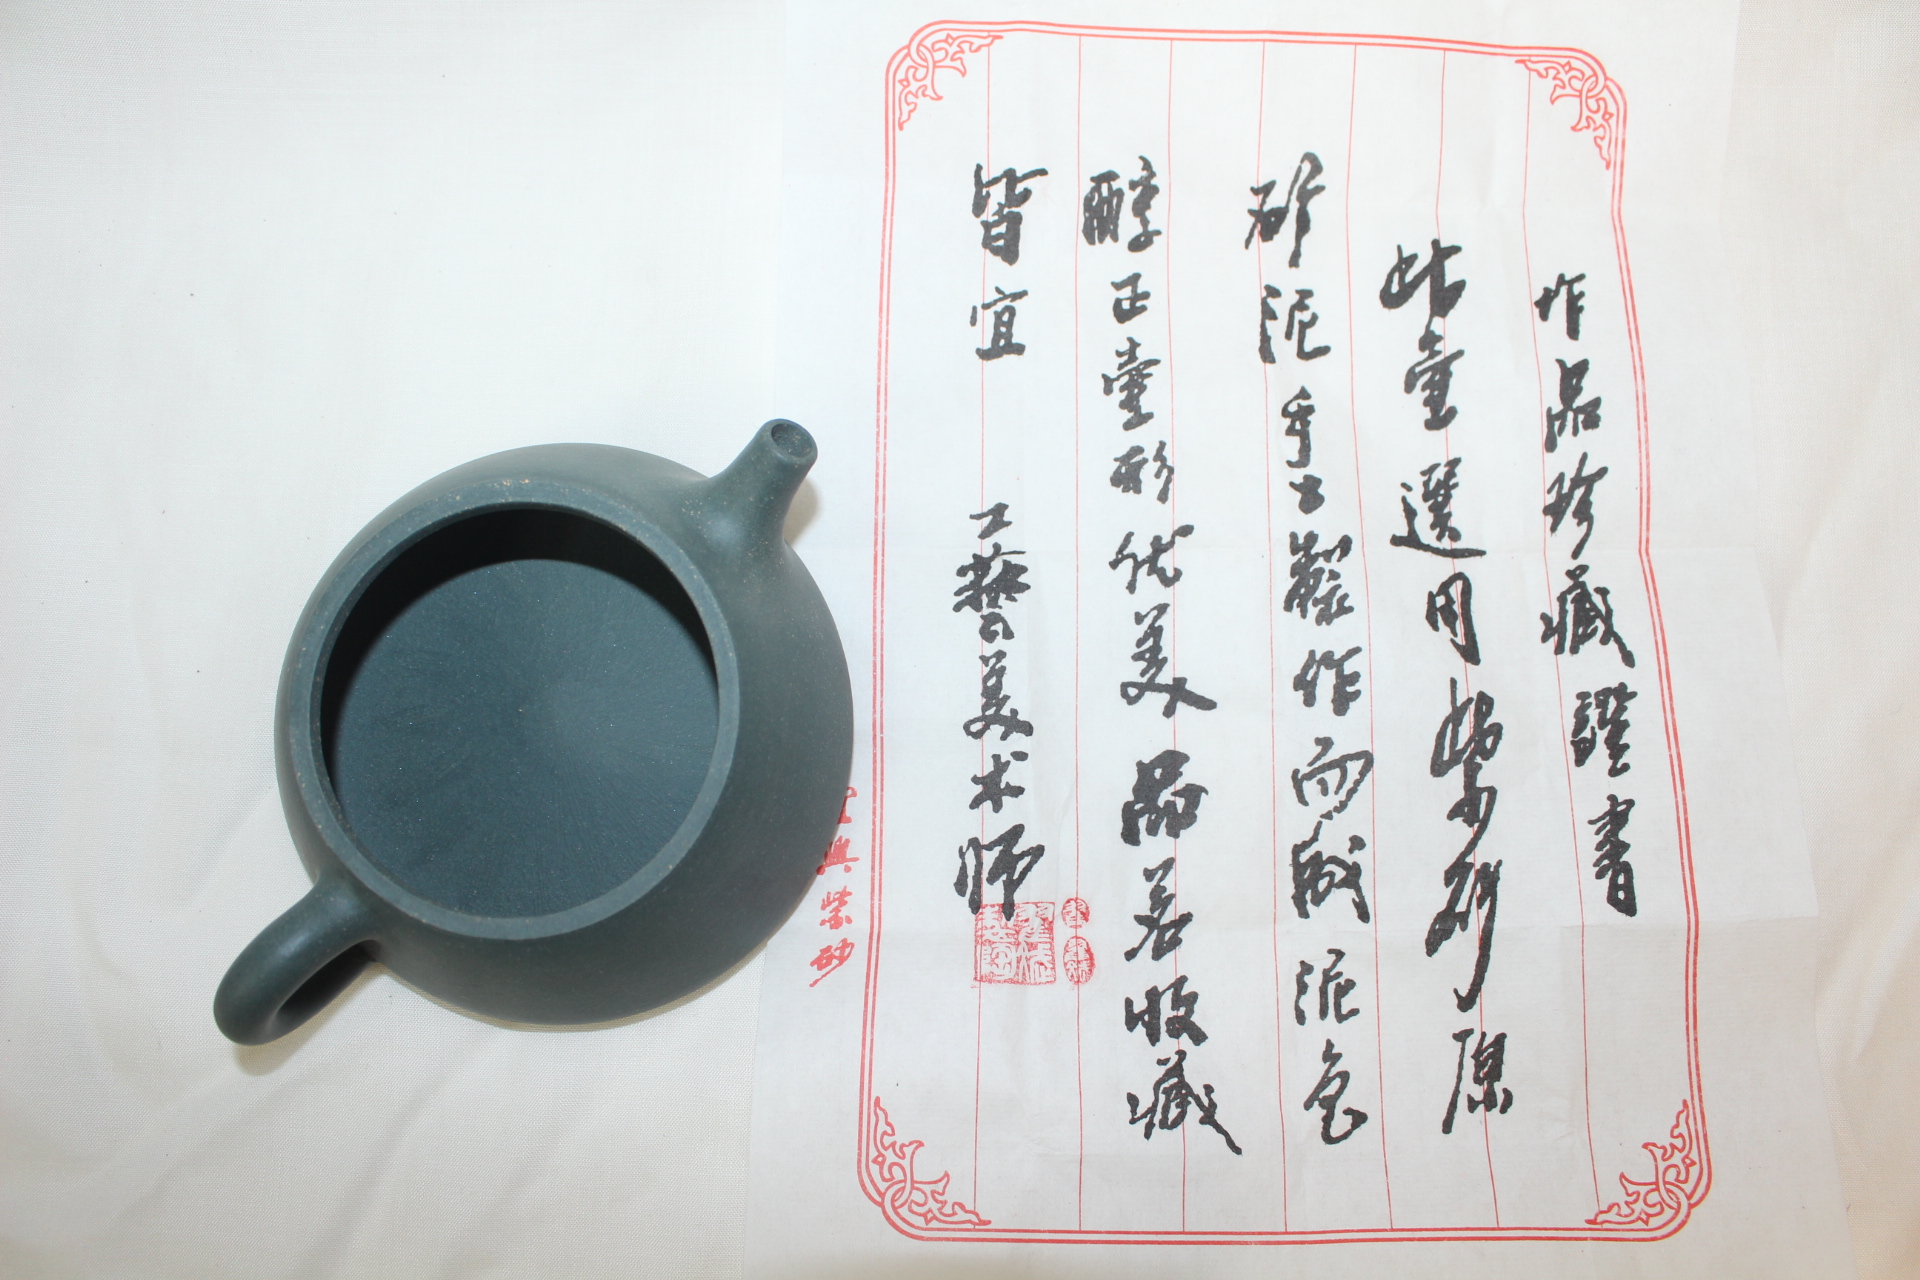 作品珍藏證書
此壷選用紫砂原
矿泥手工製作而成泥色
醇正壷形优美品茗收藏
皆宜
工藝美术师
興紫砂